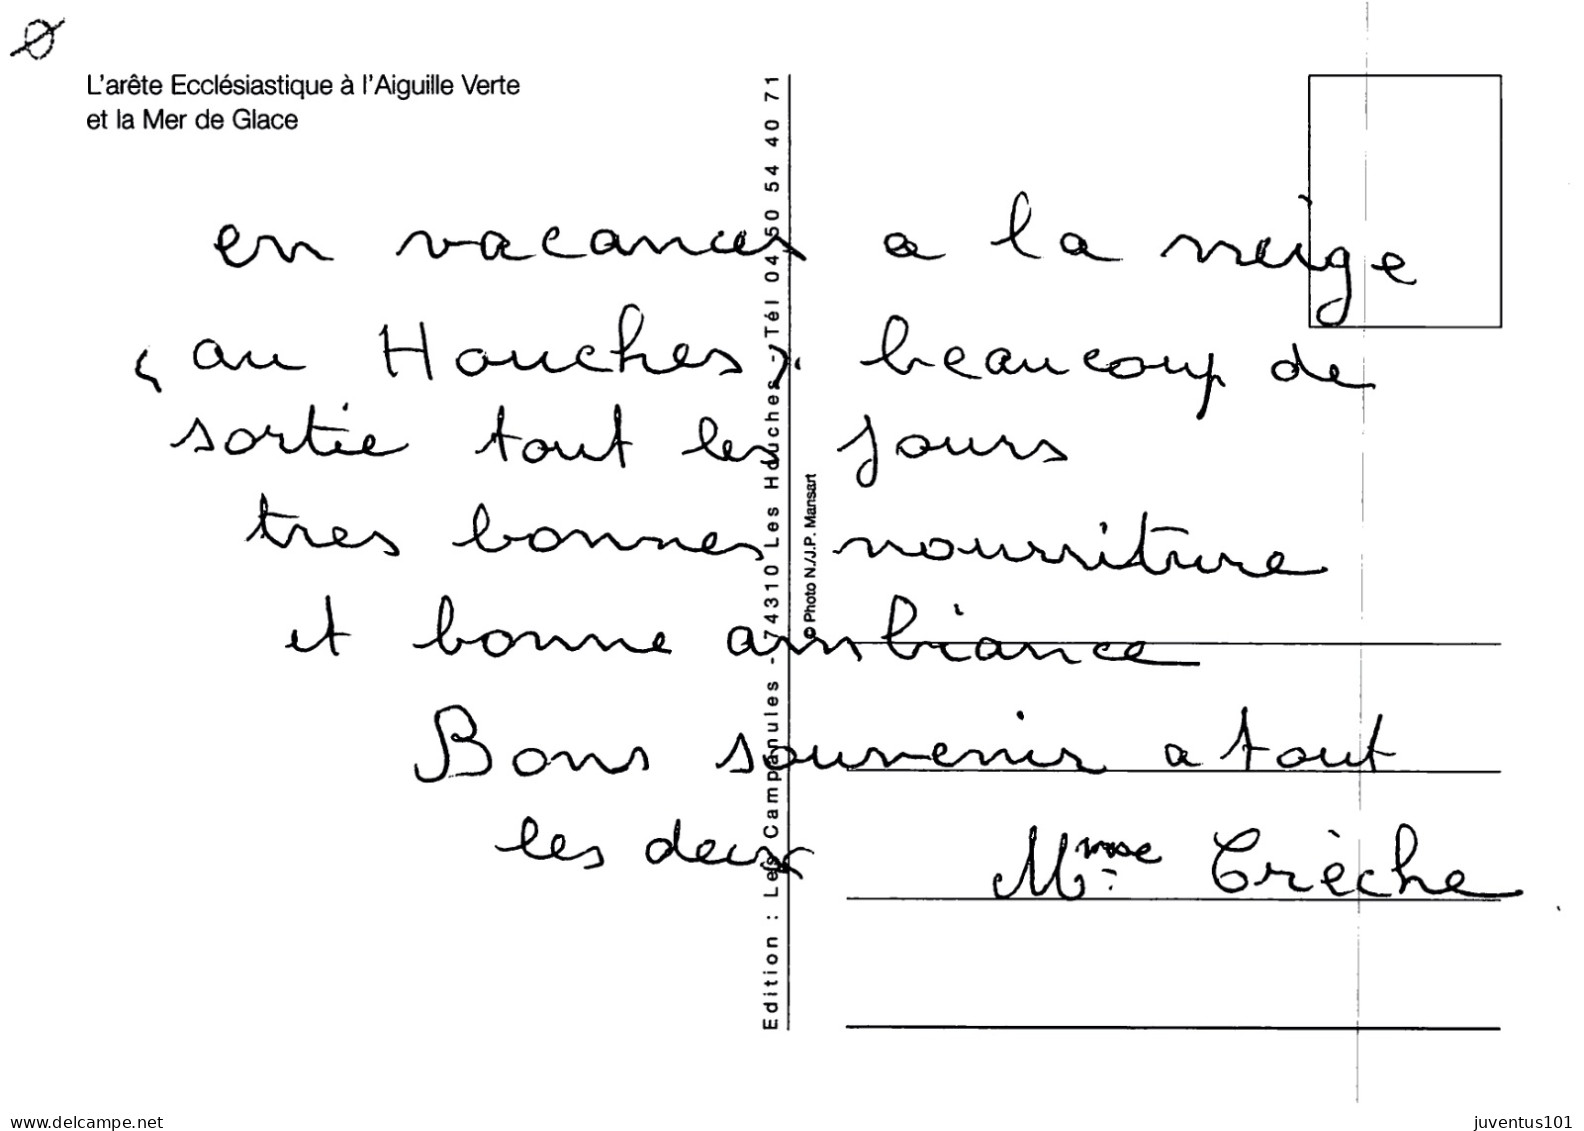 L'arête Ecclésiastique à l'Aiguille Verte
et la Mer de Glace
en vacances a la neige
"au Houches" beaucoup de
sortie tout les jours
tres bonnes nourriture
et bonne ambiance
Bons souvenir a tout
les deux
Mme Crèche
Edition : Les Campanules - 74310 Les Houches - Tél 04 50 54 40 71
© Photo N./J.P. Mansart
www.delcampe.net
juventus101